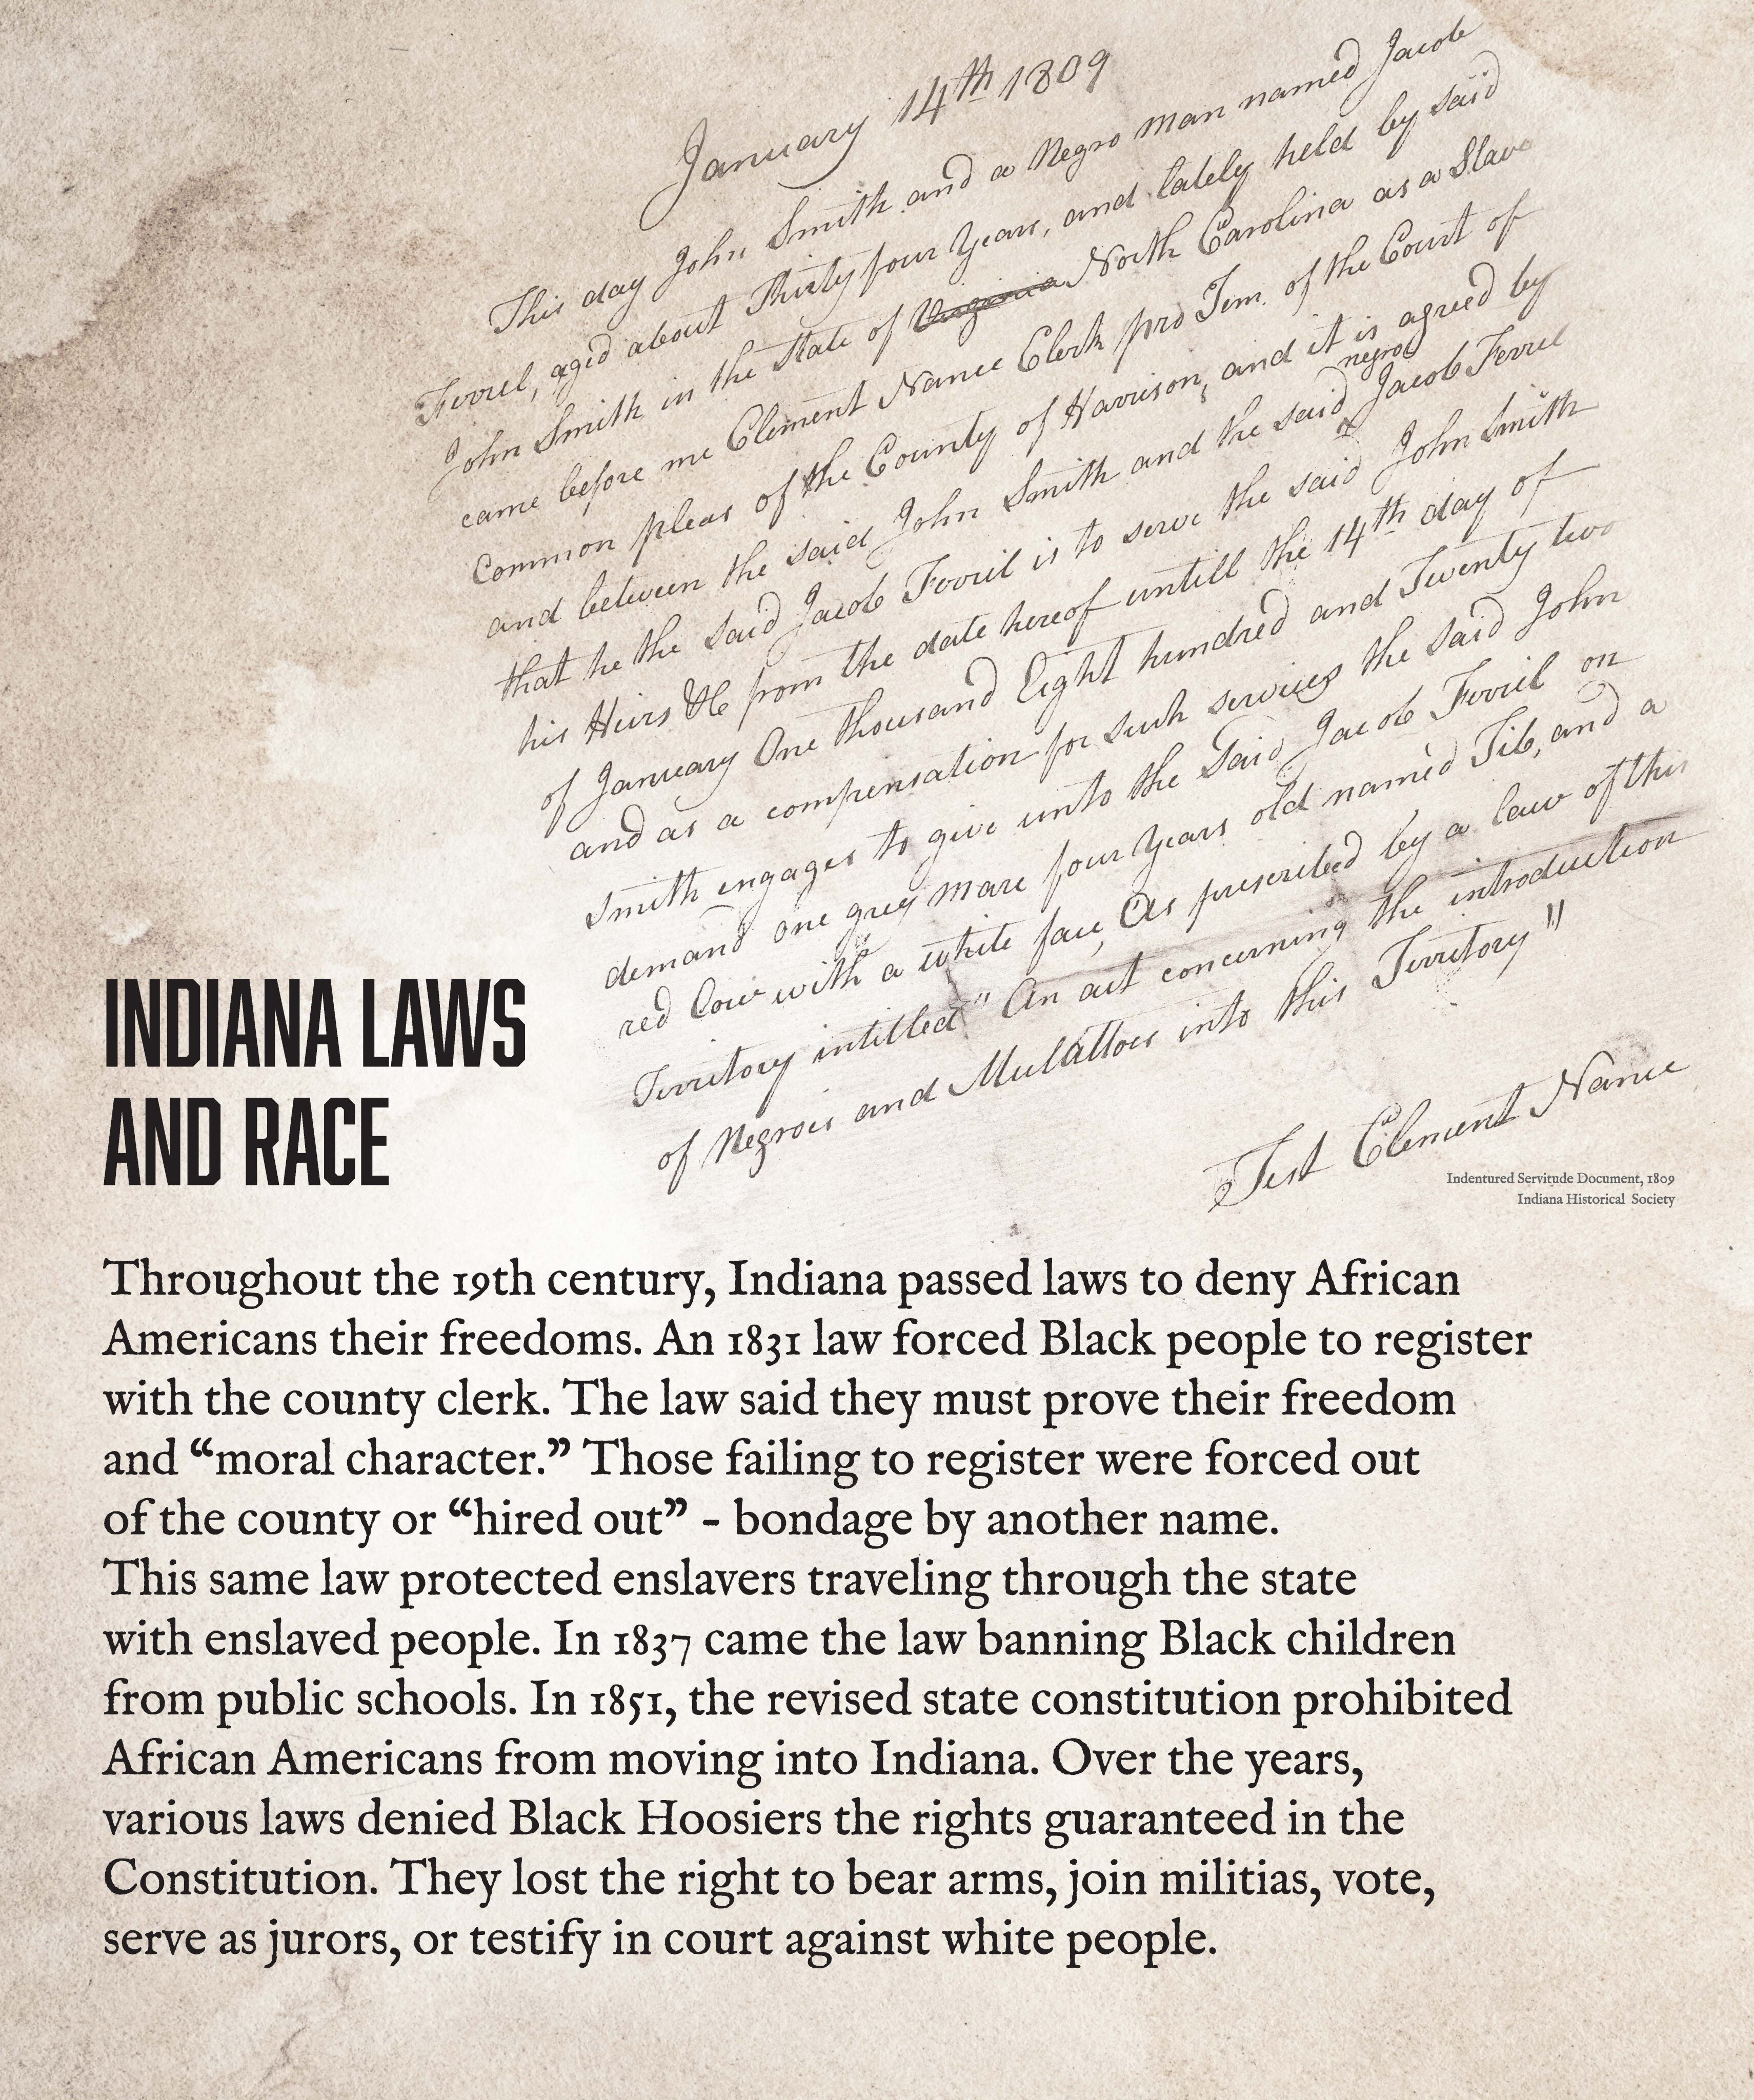 January 14th 1809
This day John Smith and a Negro man named Jacob
Ferril, aged about Thirty four Years, and lately held by said
John Smith in the State of Virginia North Carolina as a Slave
came before me Clement Nance Clerk pro Tem. of the Court of
Common pleas of the County of Harrison, and it is agreed by
and between the said John Smith and the said negro Jacob Ferril
that he the said Jacob Ferril is to serve the said John Smith
his Heirs &c from the date hereof untill the 14th day of
of January One thousand Eight hundred and Twenty two
and as a compensation for such services the said John
Smith engages to give unto the Said Jacob Ferril on
demand one grey mare four Years old named Tib, and a
red Cow with a white face, As prescribed by a law of this
Territory intitled "An act concerning the introduction
of Negroes and Mulattoes into this Territory"
Test Clement Nance
Indentured Servitude Document, 1809
Indiana Historical Society
INDIANA LAWS
AND RACE
Throughout the 19th century, Indiana passed laws to deny African
Americans their freedoms. An 1831 law forced Black people to register
with the county clerk. The law said they must prove their freedom
and “moral character.” Those failing to register were forced out
of the county or “hired out” - bondage by another name.
This same law protected enslavers traveling through the state
with enslaved people. In 1837 came the law banning Black children
from public schools. In 1851, the revised state constitution prohibited
African Americans from moving into Indiana. Over the years,
various laws denied Black Hoosiers the rights guaranteed in the
Constitution. They lost the right to bear arms, join militias, vote,
serve as jurors, or testify in court against white people.